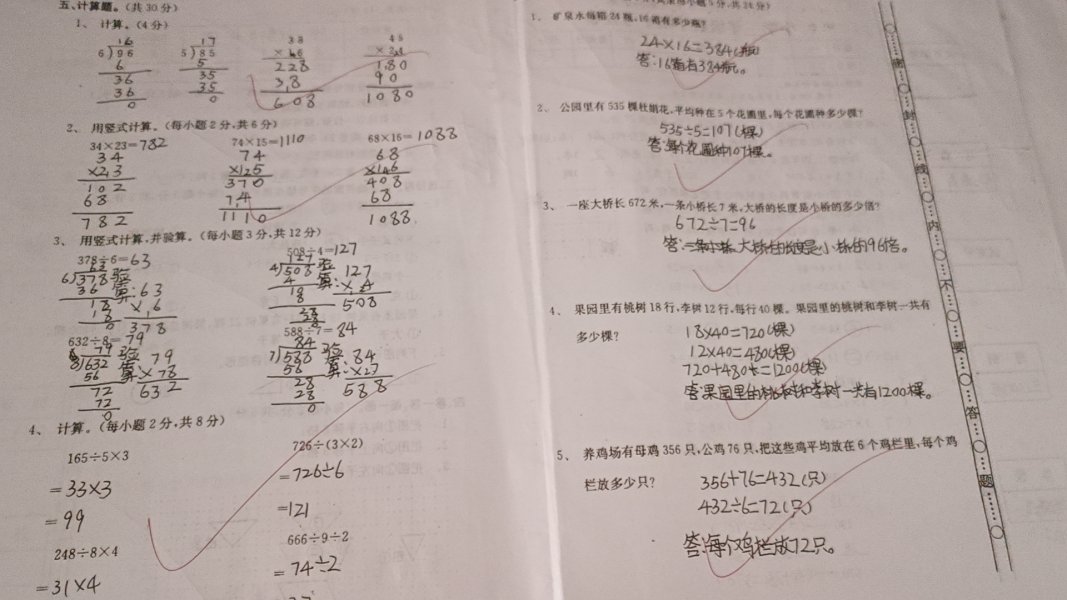 五、计算题。(共30分)
1、 计算。(4分)
16
6)96
6
36
36
0
17
5)85
5
35
35
0
38
×16
228
38
608
45
180
90
1080
2、 用竖式计算。(每小题2分,共6分)
34×23=782
34
×23
102
68
782
74×15=1110
74
×15
370
74
1110
68×16=1088
68
×16
408
68
1088
3、 用竖式计算,并验算。(每小题3分,共12分)
378÷6=63
63
6)378
36
18
18
0
验算:63
×6
378
508÷4=127
127
4)508
4
10
8
28
28
验算:127
×4
508
632÷8=79
79
8)632
56
72
72
0
验算:79
×8
632
588÷7=84
84
7)588
56
28
28
0
验算:84
×7
588
4、 计算。(每小题2分,共8分)
165÷5×3
=33×3
=99
726÷(3×2)
=726÷6
=121
248÷8×4
=31×4
666÷9÷2
=74÷2
小题5分,共24分)
1、 矿泉水每箱24瓶,16箱有多少瓶?
24×16=384(瓶)
答:16箱有384瓶。
2、 公园里有535棵杜鹃花,平均种在5个花圃里,每个花圃种多少棵?
535÷5=107(棵)
答:每个花圃种107棵。
3、 一座大桥长672米,一条小桥长7米,大桥的长度是小桥的多少倍?
672÷7=96
大桥的长度是小桥的96倍。
4、 果园里有桃树18行,李树12行,每行40棵。果园里的桃树和李树一共有
多少棵?
18×40=720(棵)
12×40=480(棵)
720+480=1200(棵)
答:果园里的桃树和李树一共有1200棵。
5、 养鸡场有母鸡356只,公鸡76只,把这些鸡平均放在6个鸡栏里,每个鸡
栏放多少只?
356+76=432(只)
432÷6=72(只)
答:每个鸡栏放72只。
密 封 线 内 不 要 答 题